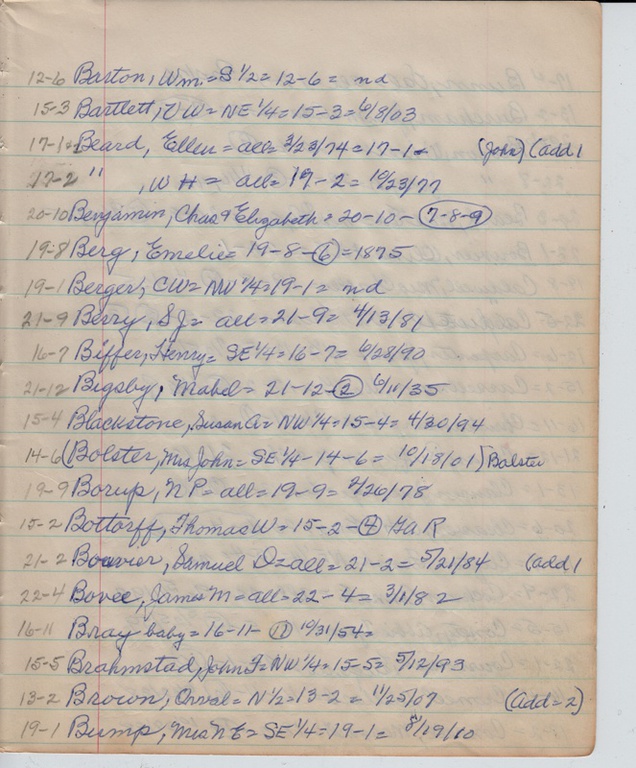 12-6 Barton, Wm. = S 1/2 = 12-6 = nd
15-3 Bartlett, VW = NE 1/4 = 15-3 = 6/8/03
17-1 Beard, Ellen = all = 3/23/74 = 17-1 = (John) (add 1
17-2 " , W H = all = 17-2 = 10/23/77
20-10 Benjamin, Chas & Elizabeth = 20-10 - (7-8-9)
19-8 Berg, Emelie = 19-8-(6) = 1875
19-1 Berger, CW = NW 1/4 = 19-1 = nd
21-9 Berry, S J = all = 21-9 = 4/13/81
16-7 Biffer, Henry = SE 1/4 = 16-7 = 6/28/90
21-12 Bigsby, Mabel = 21-12-(2) 6/11/35
15-4 Blackstone, Susan A = NW 1/4 = 15-4 = 4/30/94
14-6 (Bolster, Mrs John = SE 1/4 - 14-6 = 10/18/01) Balster
19-9 Borup, N P = all = 19-9 = 4/26/78
15-2 Bottorff, Thomas W = 15-2-(4) GAR
21-2 Bouvier, Samuel D = all = 21-2 = 5/21/84 (add 1
22-4 Bovee, James M = all = 22-4 = 3/1/82
16-11 Bray baby = 16-11- (11) 10/31/54 =
15-5 Brahmstad, John F = NW 1/4 = 15-5 = 5/12/93
13-2 Brown, Orval = N 1/2 = 13-2 = 11/25/07 (Add = 2)
19-1 Bump, Mrs N E = SE 1/4 = 19-1 = 8/19/10